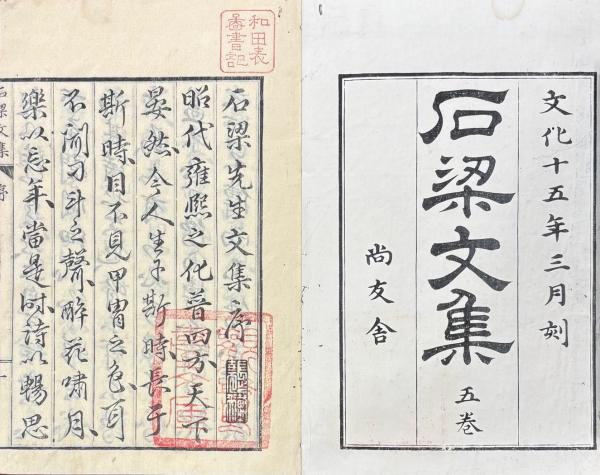 文化十五年三月刻
石梁文集
五巻
尚友舎
和田表
圖書記
石梁先生文集序
昭代雍熙之化普四方天下
晏然今人生于斯時長于
斯時目不見甲冑之色耳
不聞刁斗之聲醉花嘯月
樂以忘年當是时詩以暢思
石梁文集
序